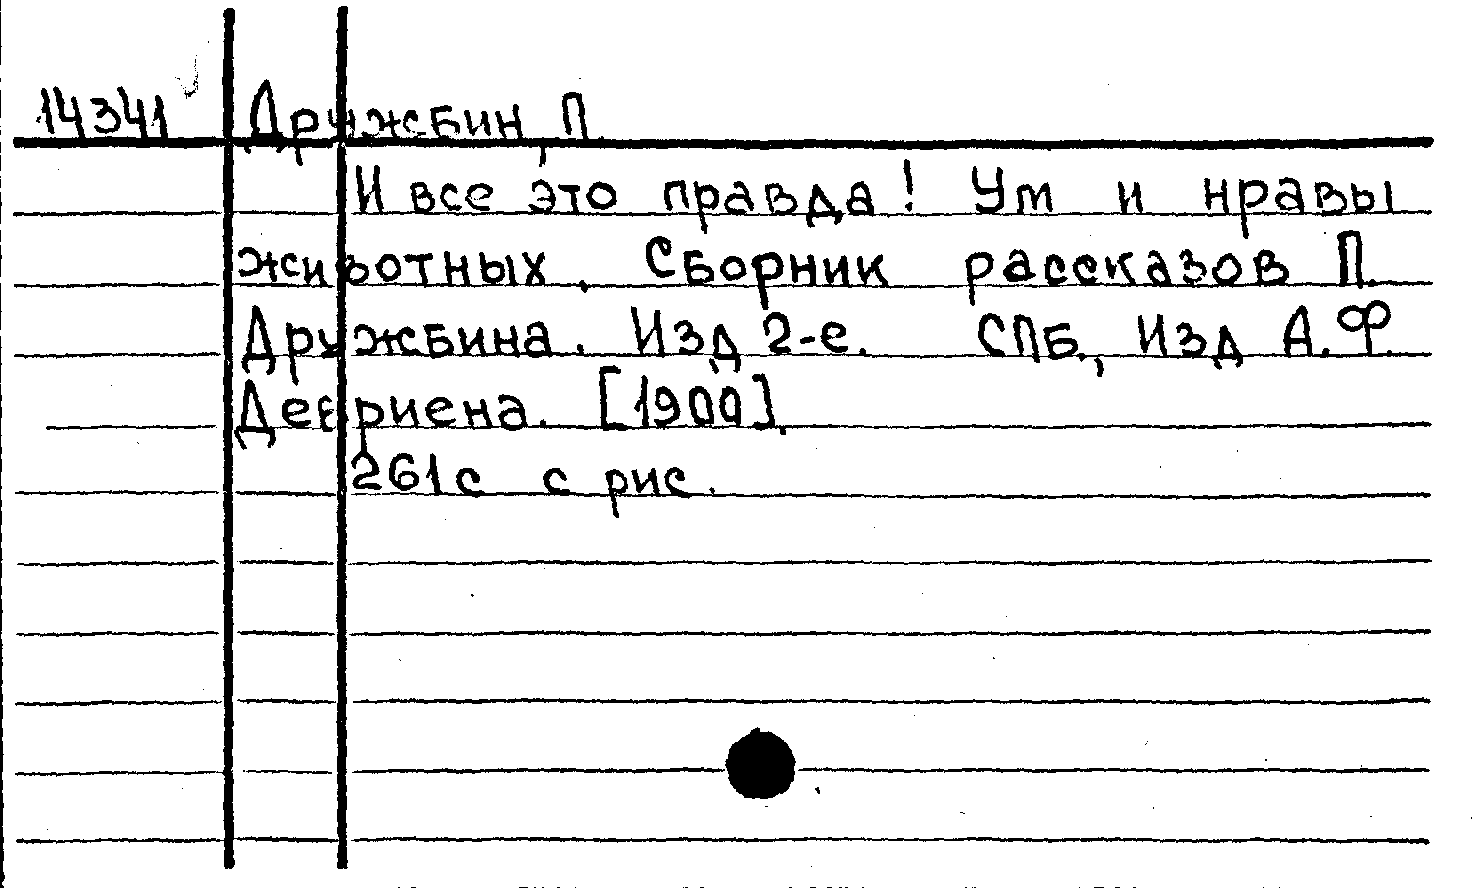 14341 Дружбин, П.
И все это правда! Ум и нравы
животных. Сборник рассказов П.
Дружбина. Изд 2-е. СПБ., Изд А.Ф.
Девриена. [1900].
261с с рис.